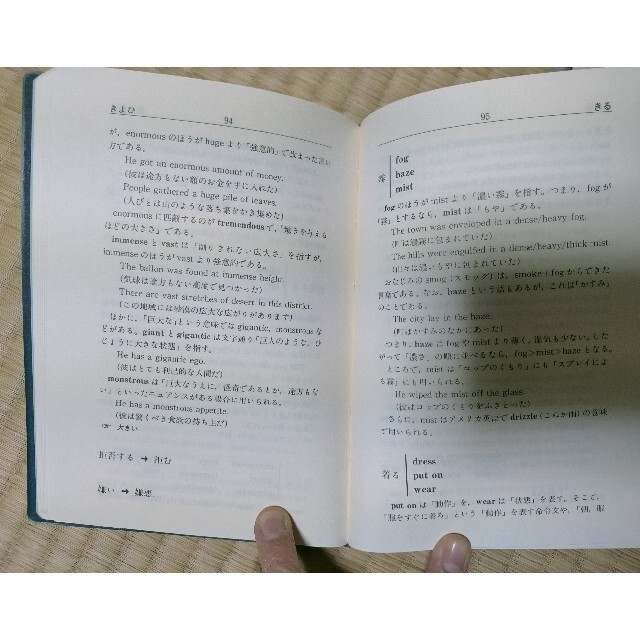 きよひ
94
が、enormous のほうが huge より「強意的」で改まった言い
方である。
He got an enormous amount of money.
(彼は途方もない額のお金を手に入れた)
People gathered a huge pile of leaves.
(人びとは山のような落ち葉をかき集めた)
enormous に匹敵するのが tremendous で、「驚きを与える
ほどの大きさ」である。
immense と vast は「測りきれない広大さ」を指すが、
immense のほうが vast より強意的である。
The ballon was found at immense height.
(気球は途方もない高度で見つかった)
There are vast stretches of desert in this district.
(この地域には砂漠の広大な広がりがあります)
ほかに、「巨大な」という意味では gigantic, monstrous な
どがある。giant と gigantic は文字通り「巨人のような、ひ
じょうに大きな状態」を指す。
He has a gigantic ego.
(彼はとても利己的な人間だ)
monstrous は「巨大なうえに、醜悪であるとか、途方もな
い」といったニュアンスがある場合に用いられる。
He has a monstrous appetite.
(彼は驚くべき食欲の持ち主だ)
☞ 大きい
拒否する → 拒む
嫌い → 嫌悪
95
きる
霧
fog
haze
mist
fog のほうが mist より「濃い霧」を指す。つまり、fog が
「霧」とするなら、mist は「もや」である。
The town was enveloped in a dense/heavy fog.
(町は濃霧に包まれていた)
The hills were engulfed in a dense/heavy/thick mist.
(丘は濃いもやに包まれていた)
おなじみの smog (スモッグ) は、smoke と fog からできた
言葉である。なお、haze という語もあるが、これは「かすみ」
のことである。
The city lay in the haze.
(町はかすみのなかにあった)
つまり、haze は fog や mist より薄く、湿気も少ない。した
がって「濃さ」の順に並べるなら、fog>mist>haze となる。
ところで、mist は「コップのくもり」にも「スプレイによ
る霧」にも用いられる。
He wiped the mist off the glass.
(彼はコップのくもりをふきとった)
さらに、mist はアメリカ英語で drizzle (こぬか雨) の意味
で用いられる。
着る
dress
put on
wear
put on は「動作」を、wear は「状態」を表す。そこで、
「服をすぐに着ろ」という「動作」を表す命令文や、「朝、服